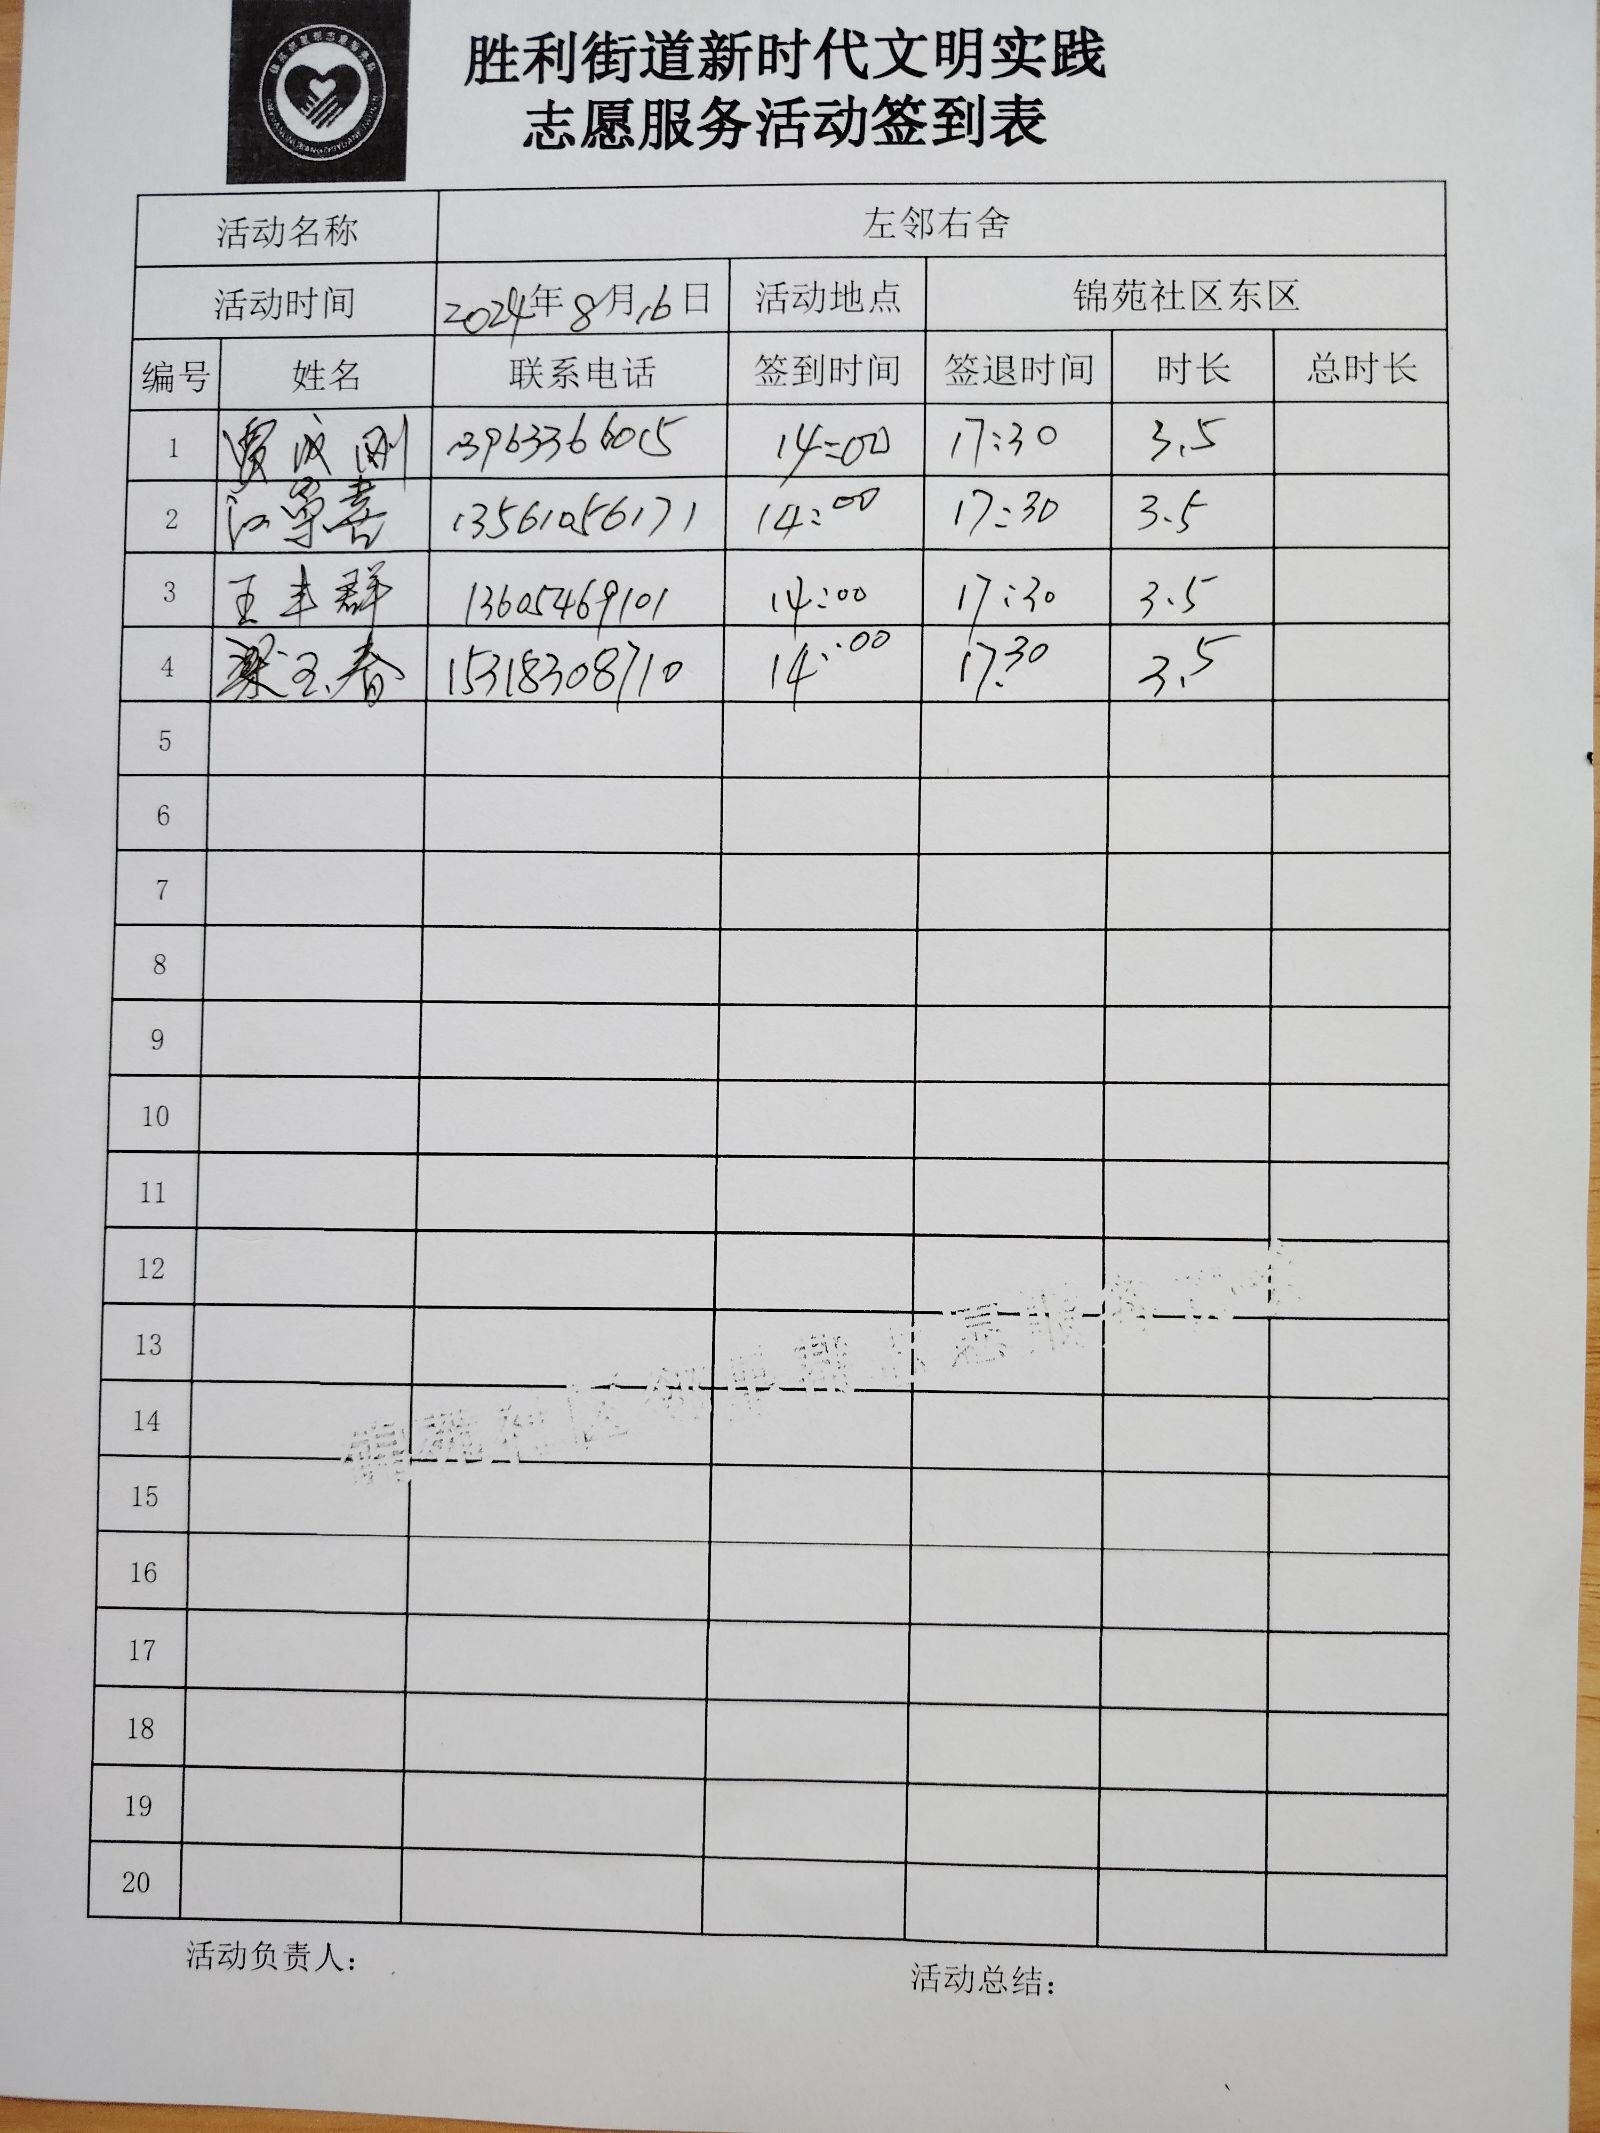 胜利街道新时代文明实践
志愿服务活动签到表
活动名称 左邻右舍
活动时间 2024年8月16日 活动地点 锦苑社区东区
编号 姓名 联系电话 签到时间 签退时间 时长 总时长
1 贾成刚 13963366015 14:00 17:30 3.5
2 13561056171 14:00 17:30 3.5
3 王丰群 13605469101 14:00 17:30 3.5
4 梁玉春 15318308710 14:00 17:30 3.5
5
6
7
8
9
10
11
12
13
14
15
16
17
18
19
20
活动负责人：
活动总结：